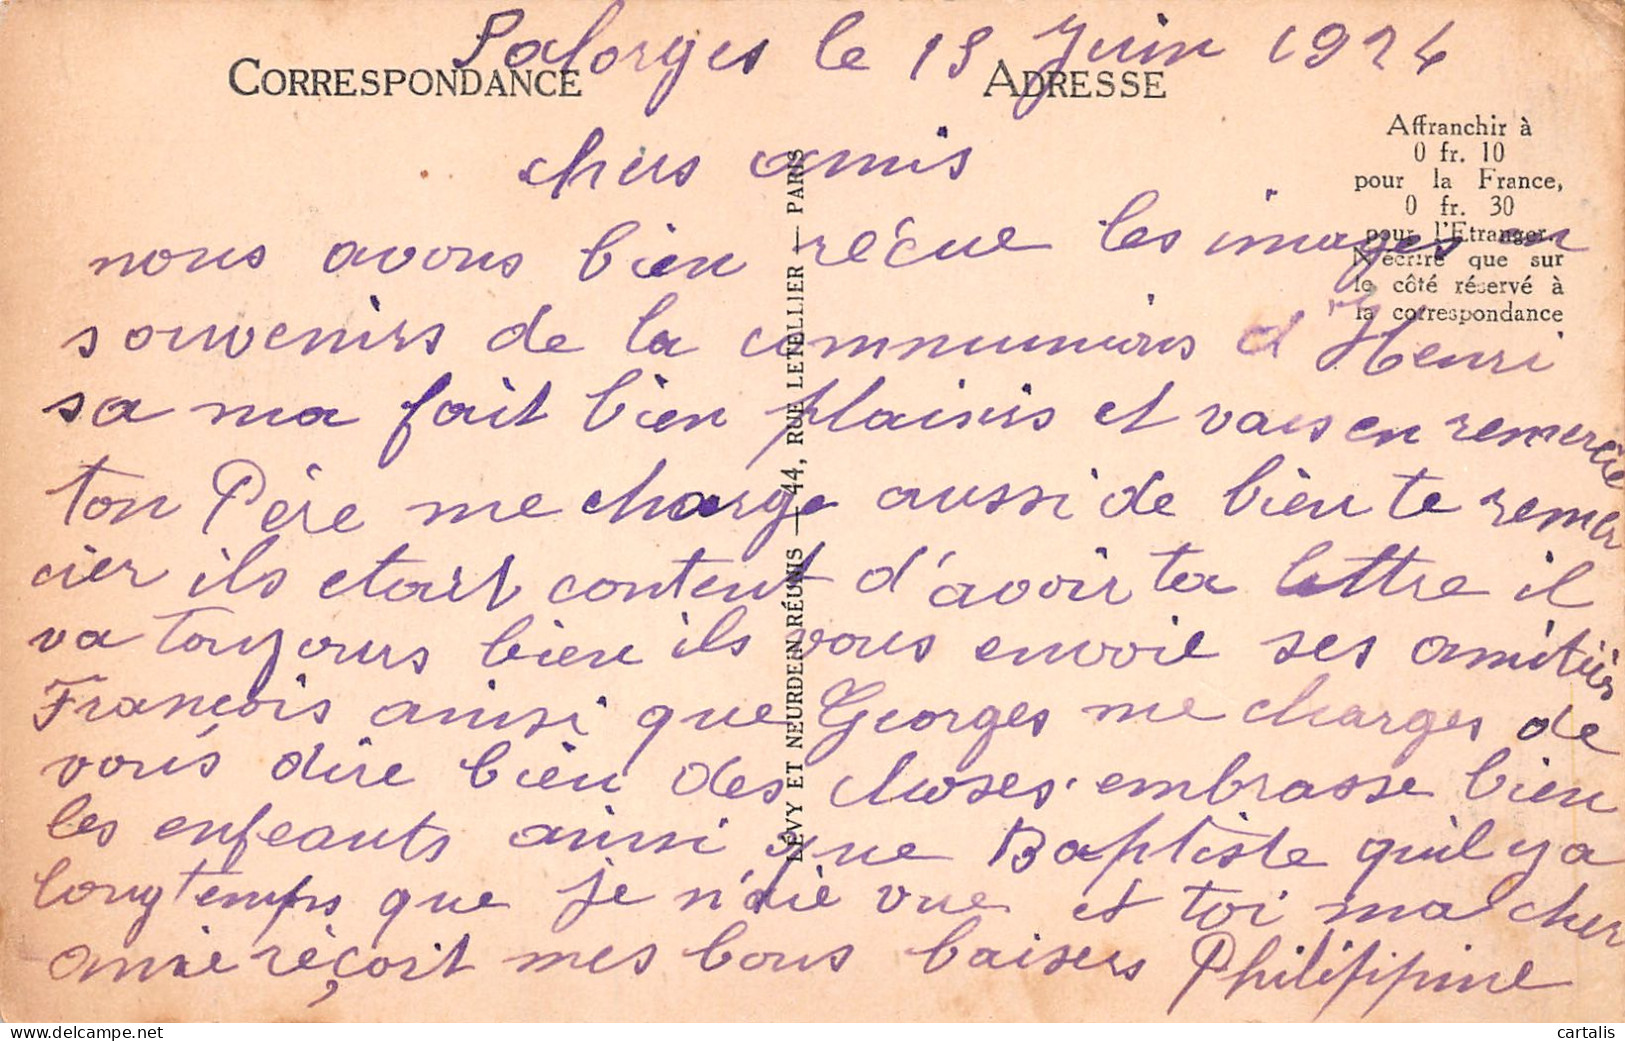 Salorges le 15 Juin 1924
CORRESPONDANCE
ADRESSE
Affranchir à
0 fr. 10
pour la France,
0 fr. 30
pour l'Etranger.
N'écrire que sur
le côté réservé à
la correspondance
LÉVY ET NEURDEIN RÉUNIS — 44, RUE LETELLIER — PARIS
chers amis
nous avons bien réçue les images en
souvenirs de la communions d'Henri
sa ma fait bien plaisirs et vais en remercie
ton Père me charge aussi de bien te remer
cier ils etait content d'avoir ta lettre il
va toujours bien ils vous envoie ses amitiés
François ainsi que Georges me charges de
vous dire bien des choses. embrasse bien
les enfeants ainsi que Baptiste qu'il y a
longtemps que je n'aie vue et toi ma cher
amie réçoit mes bons baisers Philippine
cartalis